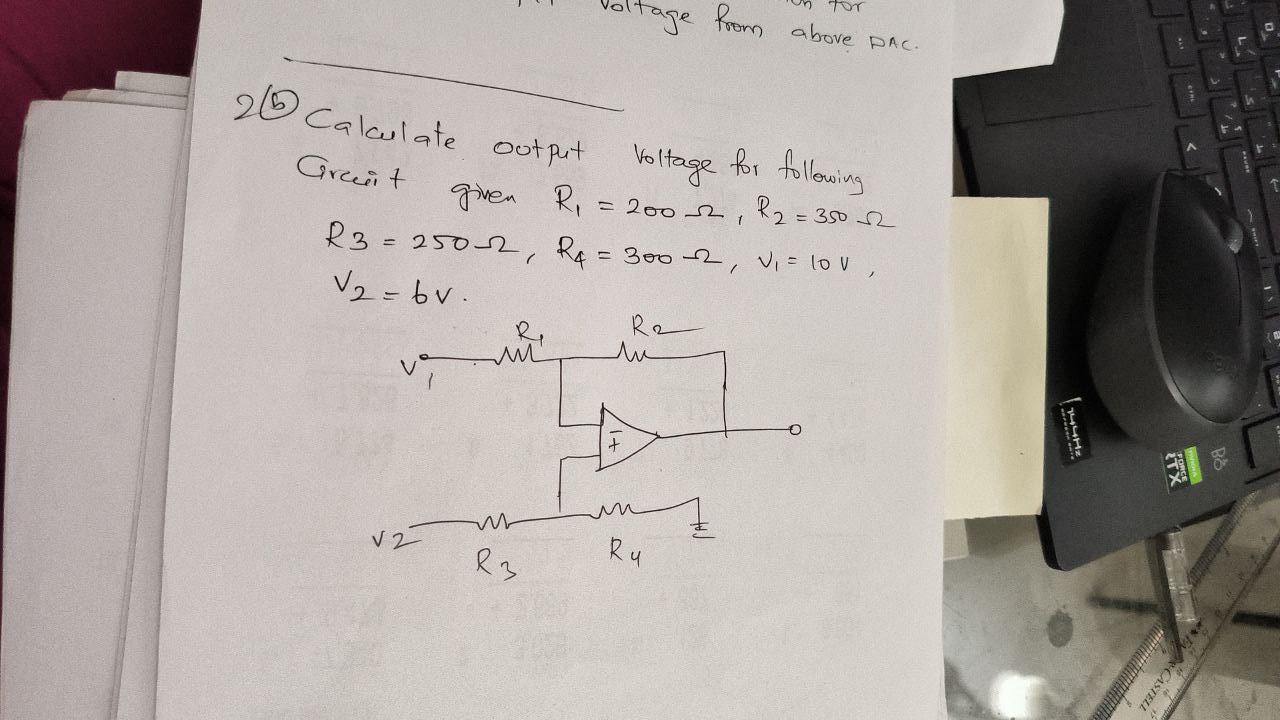 Voltage from above DAC.
2(b) Calculate output Voltage for following
Circuit given R1 = 200 Ω, R2 = 350 Ω
R3 = 250 Ω, R4 = 300 Ω, V1 = 10 V,
V2 = 6 V.
R1 R2
V1
- +
V2
R3 R4
144Hz
NVIDIA
GEFORCE
RTX